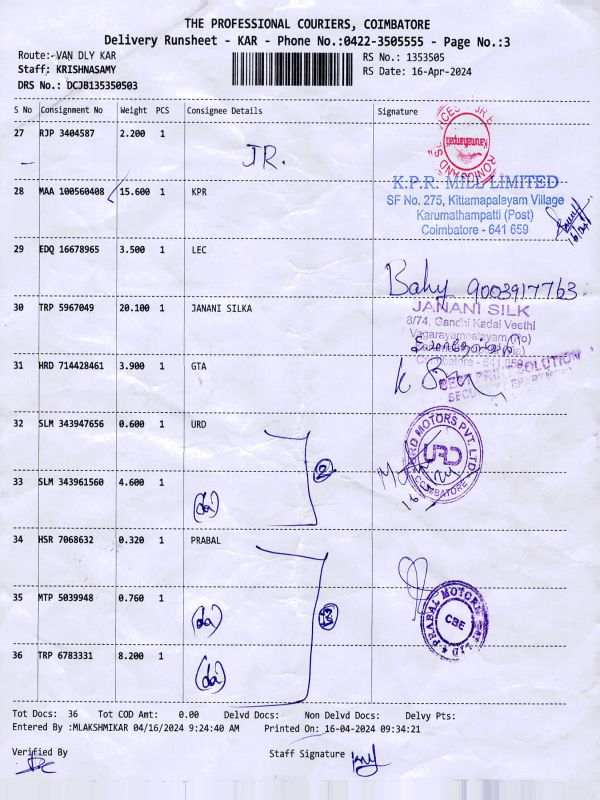 THE PROFESSIONAL COURIERS, COIMBATORE
Delivery Runsheet - KAR - Phone No.:0422-3505555 - Page No.:3
Route:-VAN DLY KAR
RS No.: 1353505
Staff: KRISHNASAMY
RS Date: 16-Apr-2024
DRS No.: DCJB135350503
S No Consignment No Weight PCS Consignee Details Signature
27 RJP 3404587 2.200 1
JR.
28 MAA 100560408 15.600 1 KPR
K.P.R. MILL LIMITED
SF No. 275, Kittamapalayam Village
Karumathampatti (Post)
Coimbatore - 641 659
29 EDQ 16678965 3.500 1 LEC
Baby 9003917763
30 TRP 5967049 20.100 1 JANANI SILKA
JANANI SILK
8/74, Gandhi Kadai Veethi
31 HRD 714428461 3.900 1 GTA
32 SLM 343947656 0.600 1 URD
URD MOTORS PVT. LTD.
URD
COIMBATORE
2
33 SLM 343961560 4.600 1
(do)
34 HSR 7068632 0.320 1 PRABAL
35 MTP 5039948 0.760 1
(do)
3
PRABAL MOTORS
CBE
36 TRP 6783331 8.200 1
(do)
Tot Docs: 36 Tot COD Amt: 0.00 Delvd Docs: Non Delvd Docs: Delvy Pts:
Entered By :MLAKSHMIKAR 04/16/2024 9:24:40 AM Printed On: 16-04-2024 09:34:21
Verified By
Staff Signature